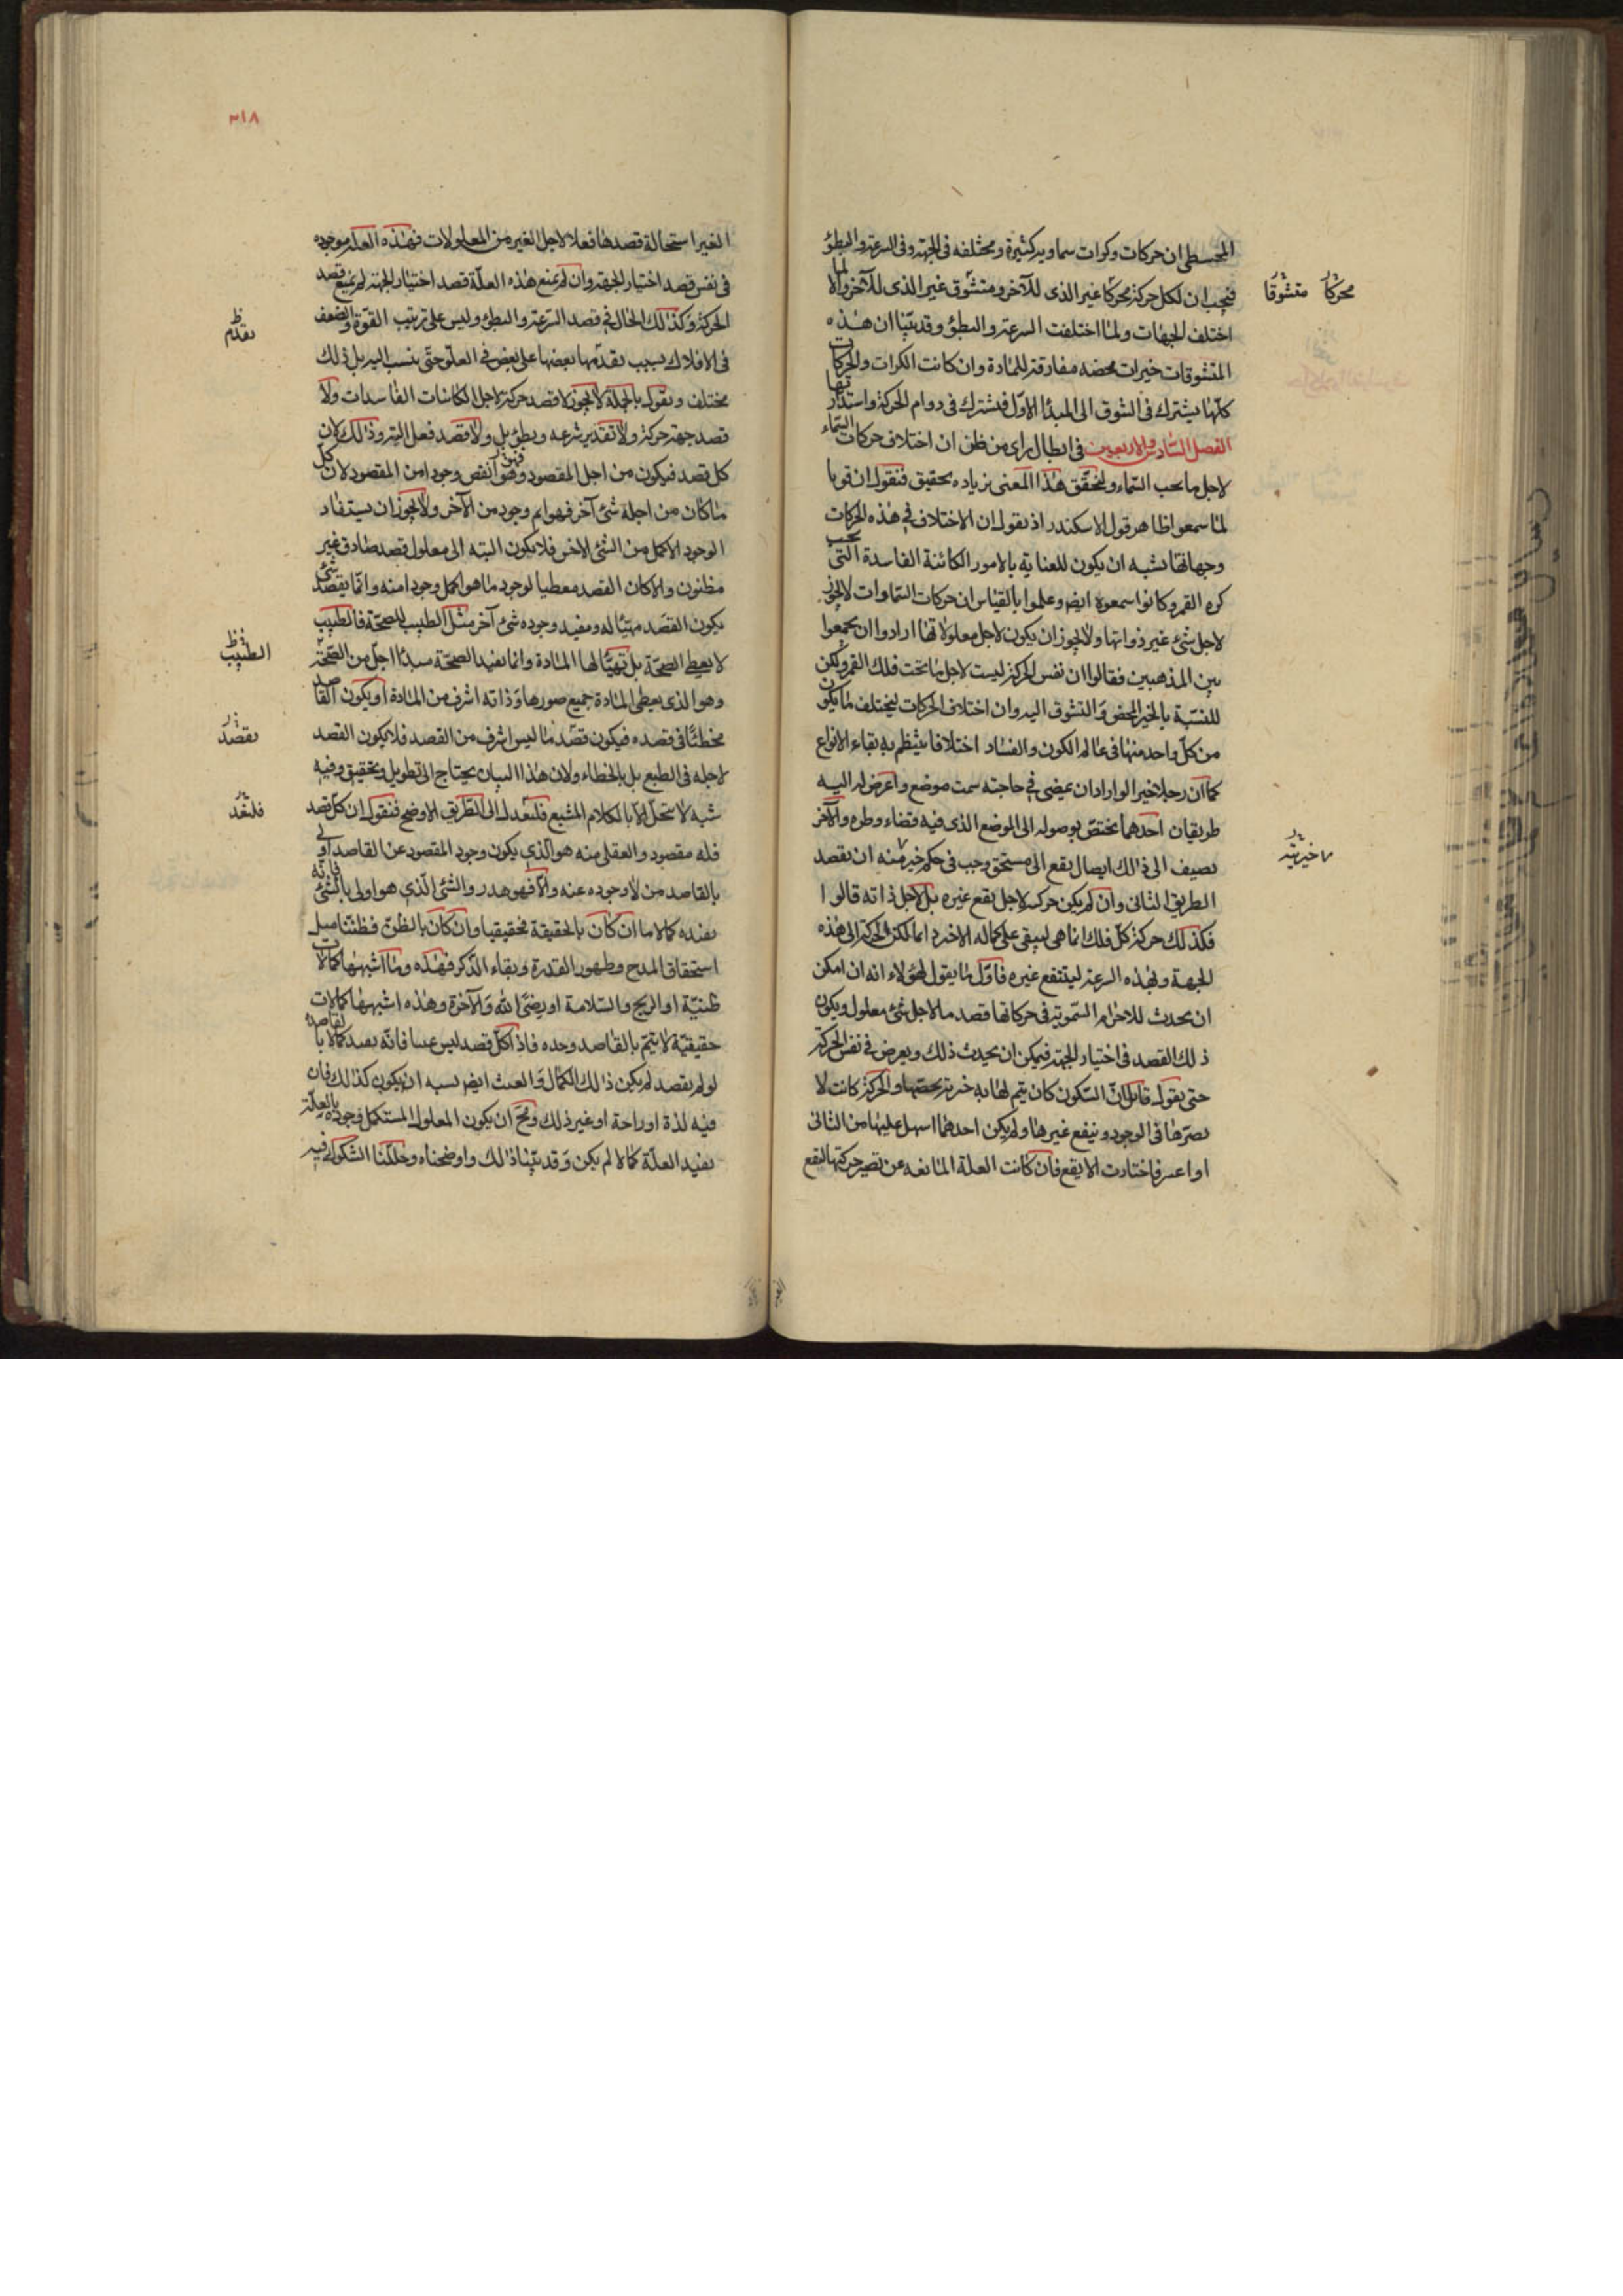 المجسطى ان حركات وكرات سماوية كثيرة ومختلفه فى الجهة وفى السرعة والبطؤ
فيجب ان لكل حركة محركا غير الذى للآخر ومتشوق غير الذى للآخر والا لما
اختلف الجهات ولما اختلفت السرعة والبطؤ وقد بيّنا ان هذه
المتشوقات خيرات محضه مفارقة للمادة وان كانت الكرات والحركات
كلّها يشترك فى الشوق الى المبدأ الاوّل فيشترك فى دوام الحركة واستدارتها
الفصل السّادس والاربعين فى ابطال راى من ظن ان اختلاف حركات السّماء
لاجل ما تحب السّماء ولنحقّق هذا المعنى بزياده تحقيق فنقول ان قوما
لمّا سمعوا ظاهر قول الاسكندر اذ يقول ان الاختلاف فى هذه الحركات
وجهاتها يشبه ان يكون للعناية بالامور الكائنة الفاسدة التى تحت
كره القمر وكانوا سمعوه ايضم وعلموا بالقياس ان حركات السّماوات لا يجوز
لاجل شئ غير ذواتها ولا يجوز ان يكون لاجل معلولاتها ارادوا ان يجمعوا
بين المذهبين فقالوا ان نفس الحركة ليست لاجل ما تحت فلك القمر ولكن
للنسبّة بالخير المحض والتشوق اليه وان اختلاف الحركات ليختلف ما يكون
من كلّ واحد منها فى عالم الكون والفساد اختلافا ينتظم به بقاء الانواع
كما ان رجلا خيرا لو اراد ان يمضى فى حاجته سمت موضع واعرض له اليه
طريقان احدهما يختص بوصوله الى الموضع الذى فيه قضاء وطره والآخر
يضيف الى ذالك ايصال نفع الى مستحق وجب فى حكم خيرته ان يقصد
الطريق الثانى وان لم يكن حركه لاجل نفع غيره بل لاجل ذاته قالوا
فكذلك حركة كلّ فلك انما هى ليبقى على كماله الاخير دائما لكن الحركة الى هذه
الجهة وبهذه السرعة لينتفع غيره فاوّل ما يقول لهؤلاء انه ان امكن
ان يحدث للاجرام السّموية فى حركاتها قصد ما لاجل شئ معلول ويكون
ذلك القصد فى اختيار الجهة فيمكن ان يحدث ذلك ويعرض فى نفس الحركة
حتى يقول قائل انّ السّكون كان يتم لها به خيرية يخصّها والحركة كانت لا
يضرّها فى الوجود وينفع غيرها ولم يكن احدهما اسهل عليها من الثانى
او اعسر فاختارت الانفع فان كانت العلة المانعه عن تصير حركتها لنفع
محركا متشوقا
خيريته
٣١٨
الغير استحالة قصدها فعلا لاجل الغير من المعلولات فهذه العلّة موجوده
فى نفس قصد اختيار الجهة وان لم يمنع هذه العلّة قصد اختيار الجهة لم يمنع قصد
الحركة وكذلك الحال فى قصد السّرعة والبطؤ وليس على ترتيب القوّة والضعف
فى الافلاك بسبب تقدّمها بعضها على بعض فى العلوّ حتّى ينسب اليه بل ذلك
مختلف ونقول بالجملة لا يجوز لا قصد حركة لاجل الكائنات الفاسدات ولا
قصد جهة حركة ولا تقدير سرعه وبطؤ بل ولا قصد فعل البتة وذالك لان
كل قصد فيكون من اجل المقصود فهو انقص وجودا من المقصود لان كل
ما كان من اجله شئ آخر فهو اتم وجود من الآخر ولا يجوز ان يستفاد
الوجود الاكمل من الشئ الاخس فلا يكون البته الى معلول قصد صادق غير
مظنون والا كان القصد معطيا لوجود ما هو اكمل وجودا منه وانّما يقصد شئ
يكون القصد مهيّئا له ومفيد وجوده شئ آخر مثل الطبيب للصحّة فالطبيب
لا يعطى الصحّة بل تهيّئا لها المادة وانما يفيد الصحّة مبدئا اجلّ من الصّحّة
وهو الذى يعطى المادة جميع صورها وذاته اشرف من المادة او يكون القاصد
مخطئا فى قصده فيكون قصد ما ليس اشرف من القصد فلا يكون القصد
لاجله فى الطبع بل بالخطاء ولان هذا البيان يحتاج الى تطويل وتحقيق وفيه
شبه لا ستحلّ الا بالكلام المشبع فلنعدل الى الطريق الاوضح فنقول ان كلّ قصد
فله مقصود والعقلى منه هو الّذى يكون وجود المقصود عن القاصد اولى
بالقاصد من لا وجوده عنه والّا فهو هدر والشئ الّذى هو اولى بالشئ فانّه
يفيده كمالا ما ان كان بالحقيقة فحقيقيا وان كان بالظنّ فظنّنا مثل
استحقاق المدح وظهور القدرة وبقاء الذّكر فهذه وما اشبهها كمالات
ظنيّة او الربح والسّلامة او يرضى الله والآخرة وهذه اشبهها كمالات
حقيقيّة لا يتم بالقاصد وحده فاذا كلّ قصد ليس عبثا فانّه يفيد كمالا لقاصده
لو لم يقصد لم يكن ذالك الكمال والعبث ايضم يشبه ان يكون كذالك فان
فيه لذة او راحة او غير ذلك ومح ان يكون المعلول المستكمل وجوده بالعلّة
يفيد العلّة كمالا لم يكن وقد بيّنا ذالك واوضحناه وحللّنا الشكوك فيه
تقدّم
الطّبيب
يقصد
فلنعد